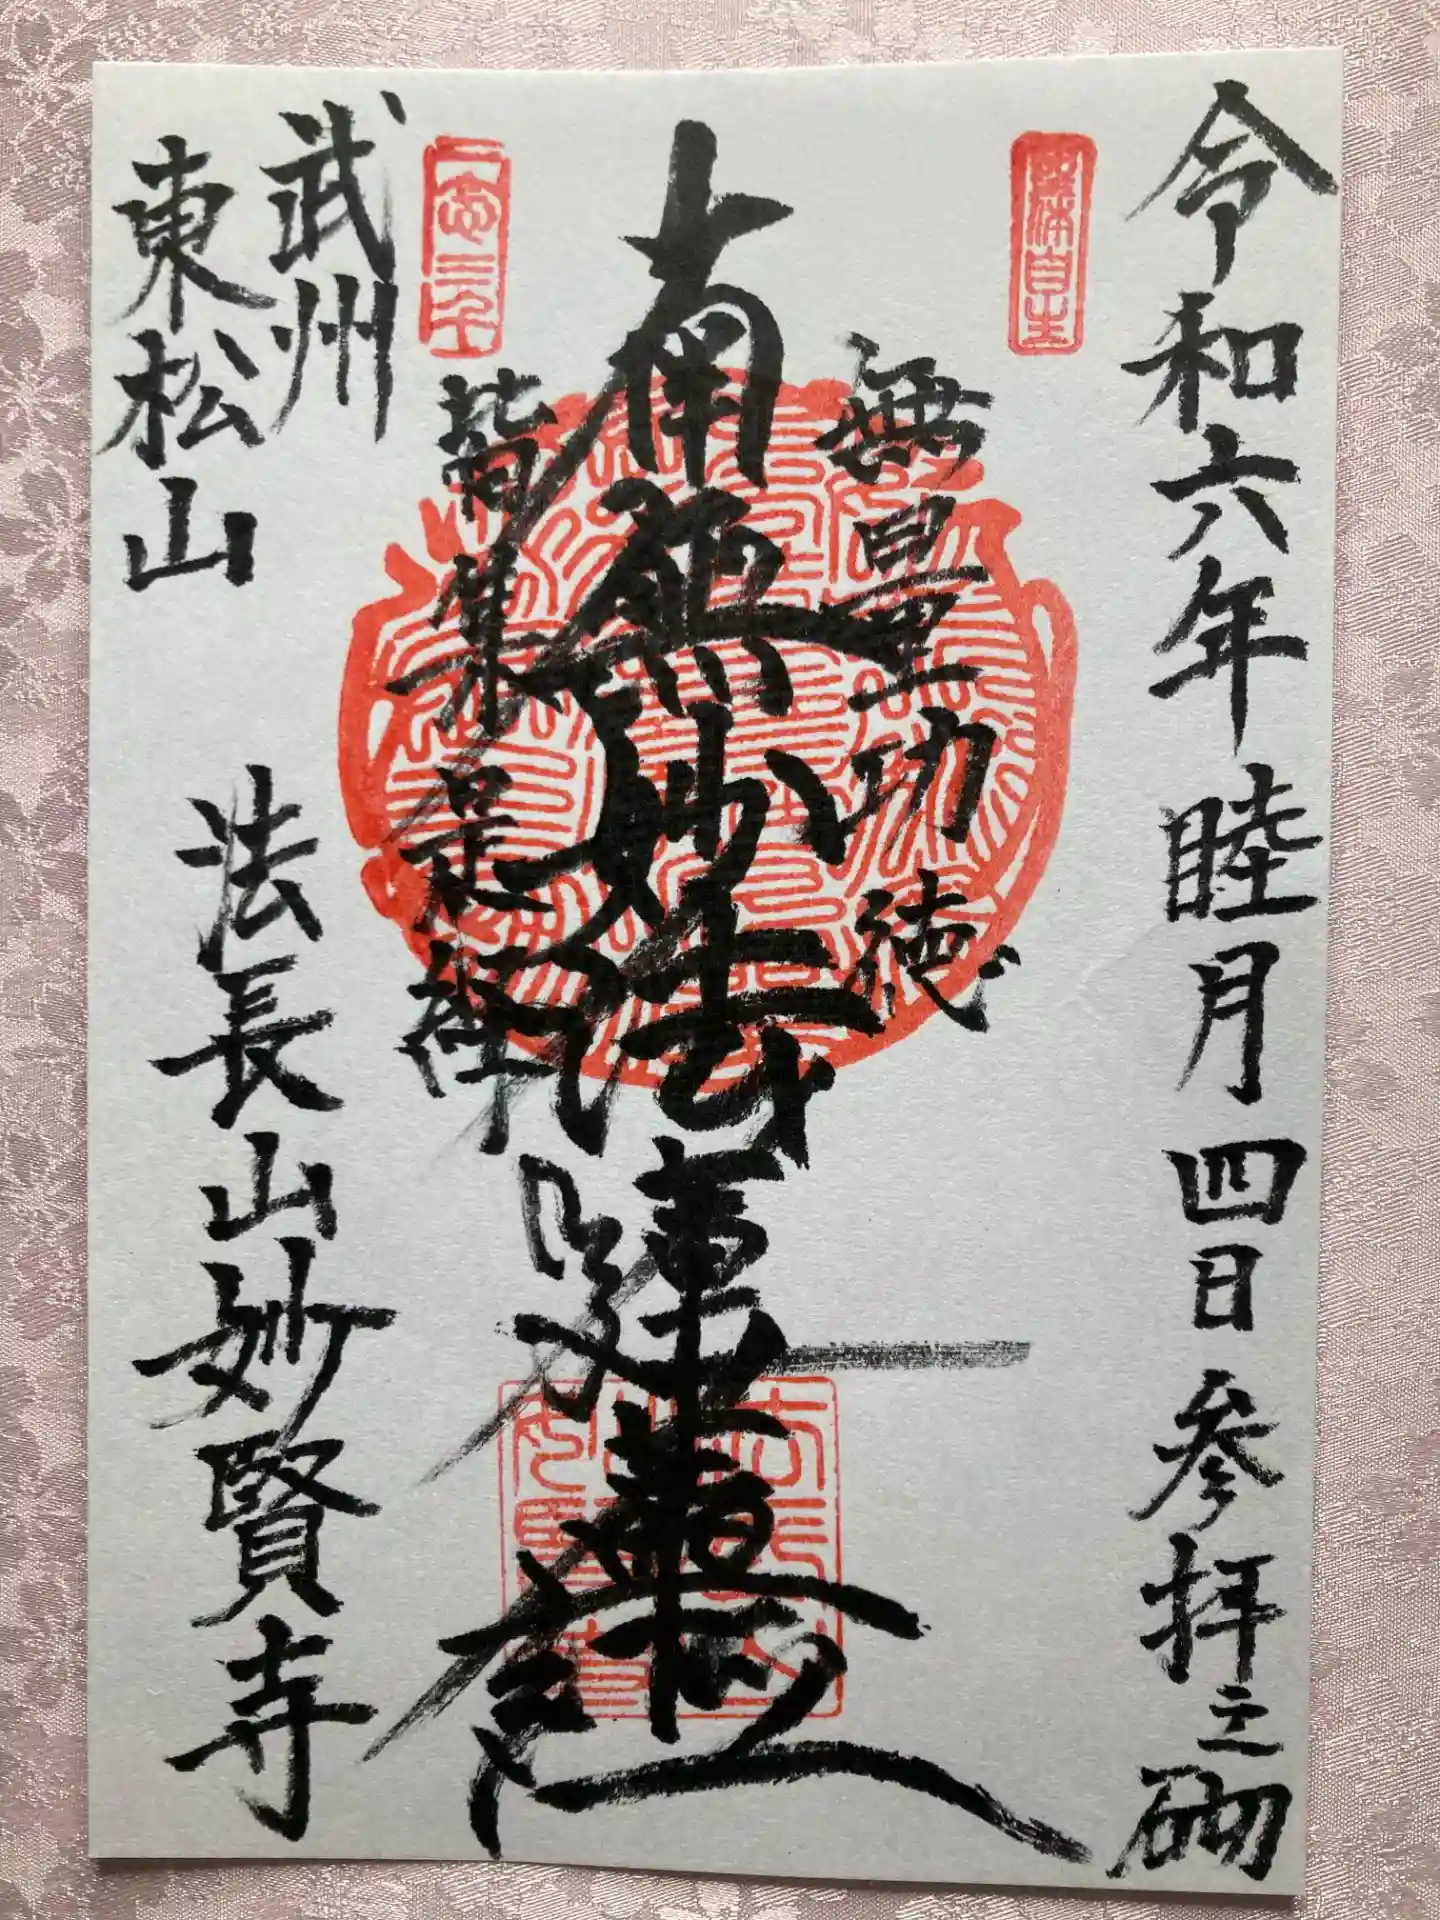 令和六年睦月四日参拝之砌
無量功徳
南無妙法蓮華経
皆集是経
一念三千
武州
東松山
法長山妙賢寺